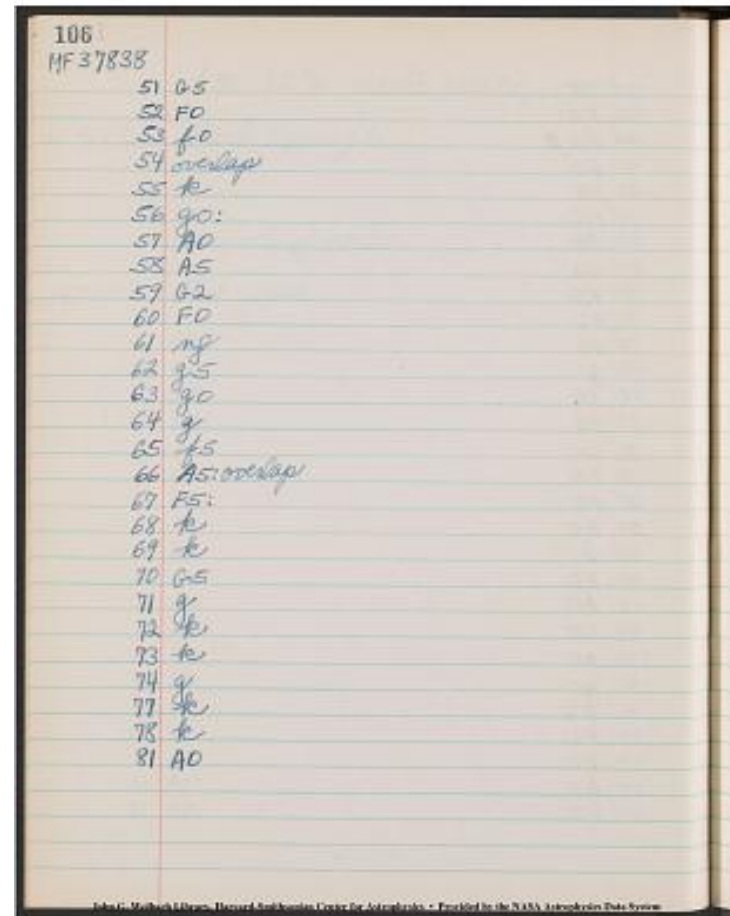 106
MF 37838
51 G5
52 F0
53 f0
54 overlap
55 k
56 g0:
57 A0
58 A5
59 G2
60 F0
61 nf
62 g5
63 g0
64 g
65 f5
66 A5: overlap
67 F5:
68 k
69 k
70 G5
71 g
72 k
73 k
74 g
77 k
78 k
81 A0
John G. Wolbach Library, Harvard-Smithsonian Center for Astrophysics • Provided by the NASA Astrophysics Data System